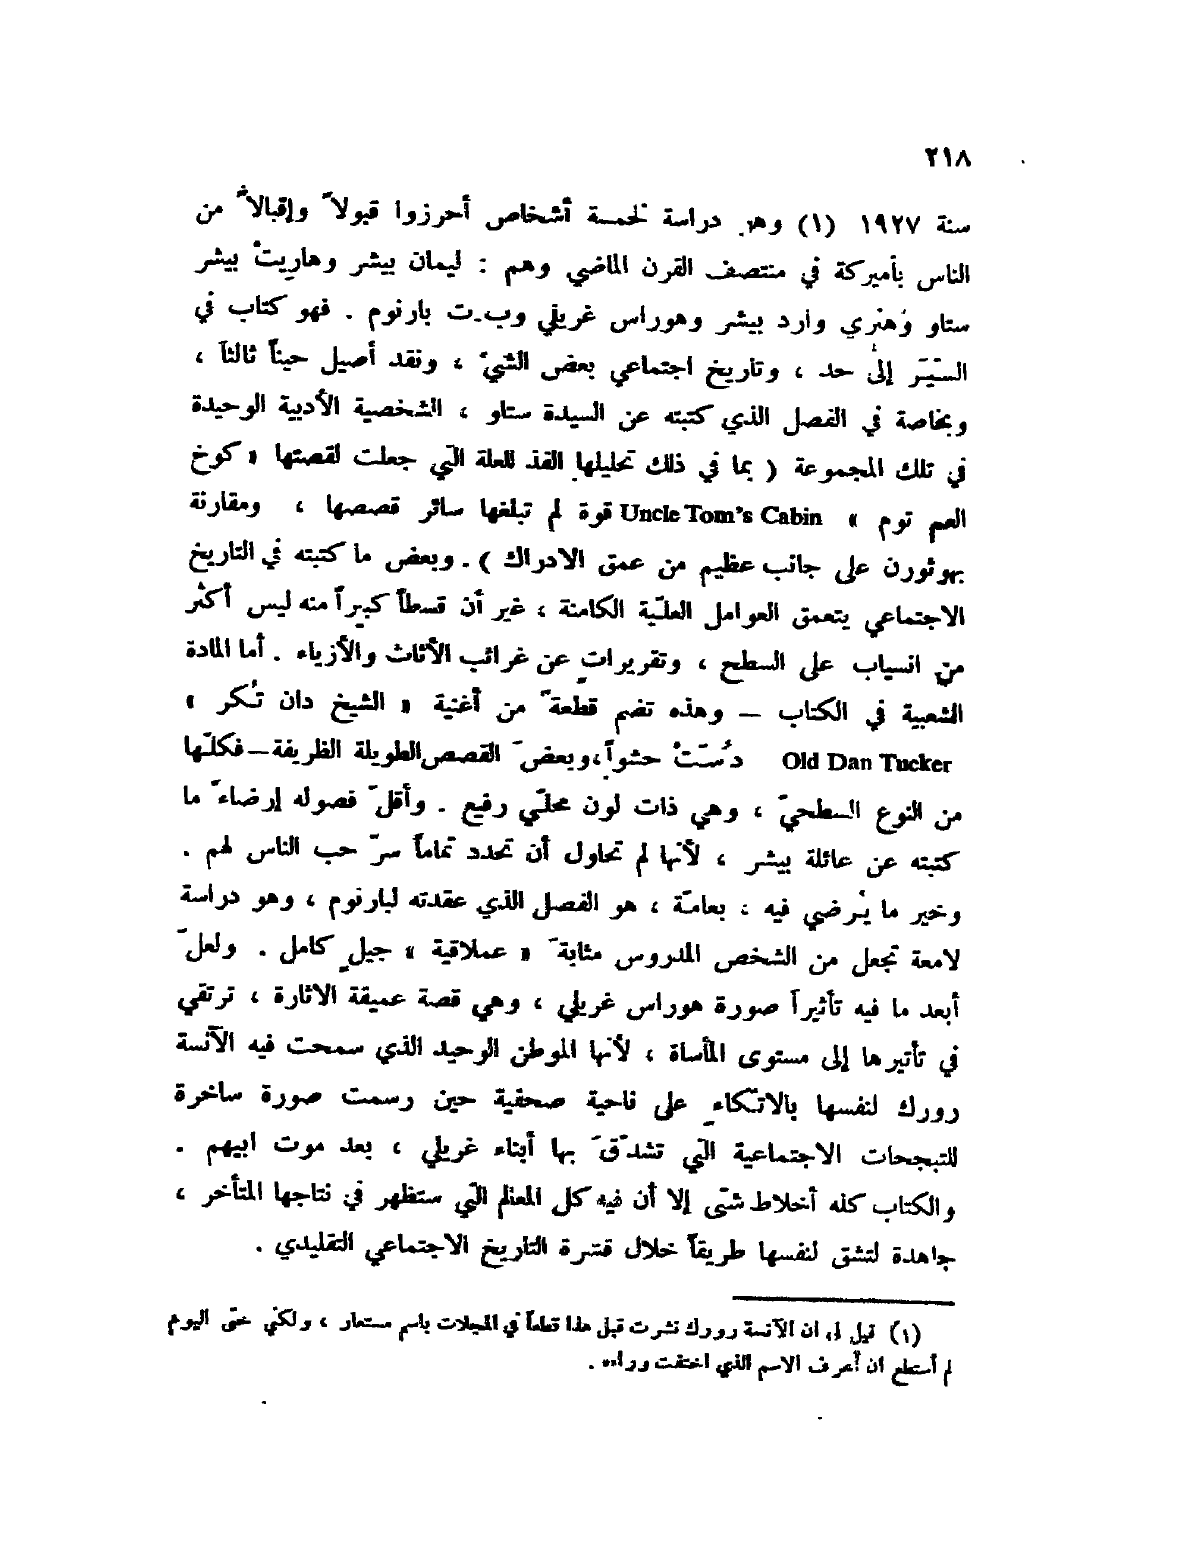 ٢١٨
سنة ١٩٢٧ (١) وهو دراسة لخمسة أشخاص أحرزوا قبولاً وإقبالاً من
الناس بأميركة في منتصف القرن الماضي وهم : ليمان بيشر وهارييتْ بيشر
ستاو وُهنْري وارد بيشر وهوراس غريلي وب.ت بارنوم . فهو كتاب في
السِّيَر إلى حد ، وتاريخ اجتماعي بعض الشيءَ ، ونقد أصيل حيناً ثالثاً ،
وبخاصة في الفصل الذي كتبته عن السيدة ستاو ، الشخصية الأدبية الوحيدة
في تلك المجموعة ( بما في ذلك تحليلها الفذ للعلة التي جعلت لقصتها « كوخ
العم توم » Uncle Tom's Cabin قوة لم تبلغها سائر قصصها ، ومقارنة
بهوثورن على جانب عظيم من عمق الادراك ) . وبعض ما كتبته في التاريخ
الاجتماعي يتعمق العوامل العلّية الكامنة ، غير أن قسطاً كبيراً منه ليس أكثر
من انسياب على السطح ، وتقريراتٍ عن غرائب الأثاث والأزياء . أما المادة
الشعبية في الكتاب – وهذه تضم قطعةً من أغنية « الشيخ دان تُكر »
Old Dan Tucker دُسَّتْ حشواً ، وبعضَ القصص الطويلة الظريفة – فكلّها
من النوع السطحيّ ، وهي ذات لون محلّي رفيع . وأقلّ فصوله إرضاءً ما
كتبته عن عائلة بيشر ، لأنها لم تحاول أن تحدد تماماً سرّ حب الناس لهم .
وخير ما يُرضي فيه ، بعامّة ، هو الفصل الذي عقدته لبارنوم ، وهو دراسة
لامعة تجعل من الشخص المدروس مثابةَ « عملاقية » جيلٍ كامل . ولعلّ
أبعد ما فيه تأثيراً صورة هوراس غريلي ، وهي قصة عميقة الاثارة ، ترتقي
في تأثيرها إلى مستوى المأساة ، لأنها الموطن الوحيد الذي سمحت فيه الآنسة
رورك لنفسها بالاتّكاءِ على ناحية صحفية حين رسمت صورة ساخرة
للتبجحات الاجتماعية التي تشدّقَ بها أبناء غريلي ، بعد موت ابيهم .
والكتاب كله أخلاط شتّى إلا أن فيه كل المعالم التي ستظهر في نتاجها المتأخر ،
جاهدة لتشق لنفسها طريقاً خلال قشرة التاريخ الاجتماعي التقليدي .
(١) قيل لي ان الآنسة رورك نشرت قبل هذا قطعاً في المجلات باسم مستعار ، ولكني حتى اليوم
لم أستطع ان أعرف الاسم الذي اختفت وراءه .